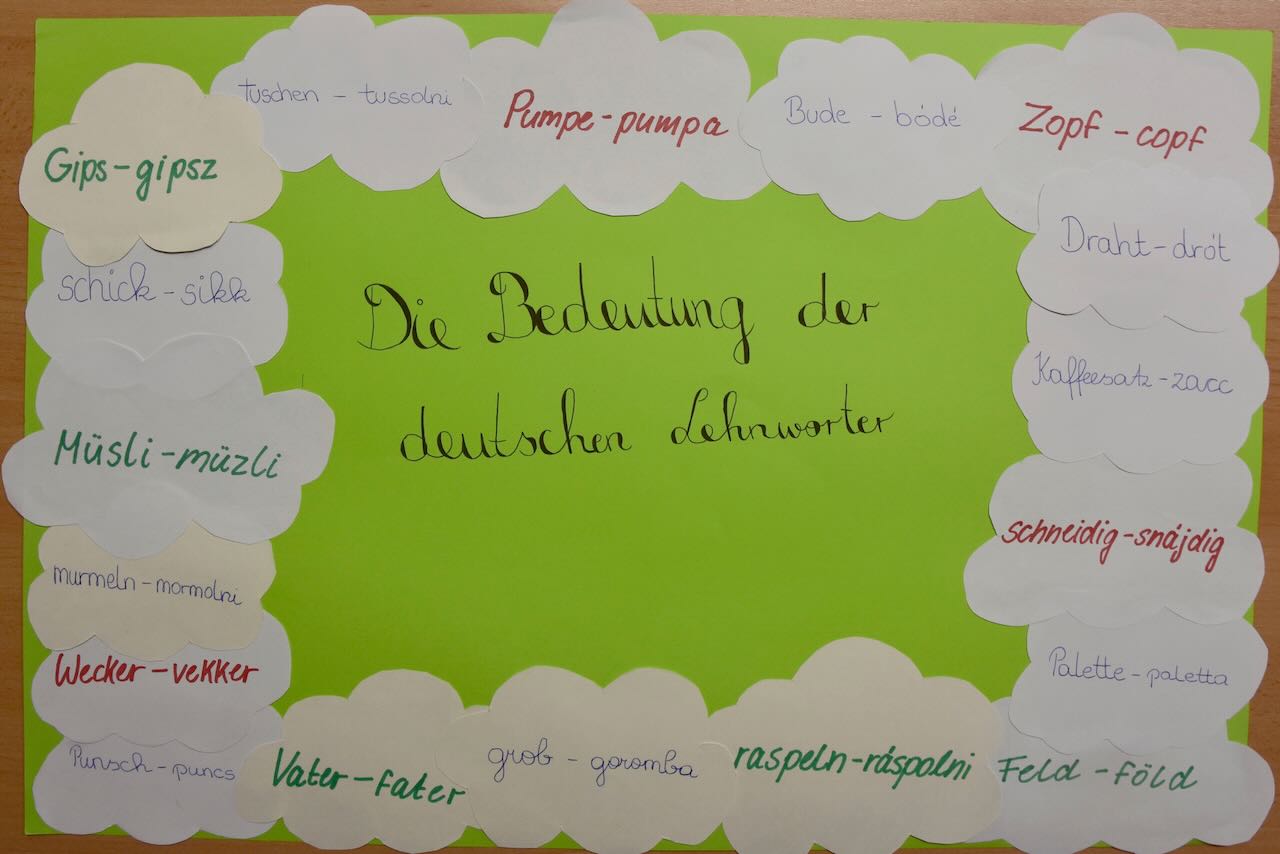 Die Bedeutung der
deutschen Lehnworter
tuschen - tussolni
Pumpe - pumpa
Bude - bódé
Zopf - copf
Draht - drót
Kaffeesatz - zacc
schneidig - snájdig
Palette - paletta
Feld - föld
raspeln - ráspolni
grob - goromba
Vater - fater
Punsch - puncs
Wecker - vekker
murmeln - mormolni
Müsli - müzli
schick - sikk
Gips - gipsz